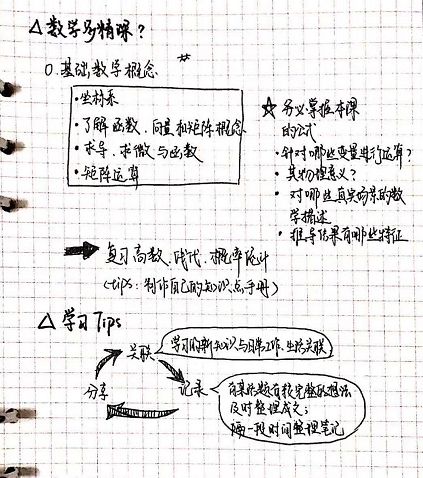 △ 数学多精深？
0. 基础数学概念
• 坐标系
• 了解函数、向量和矩阵概念
• 求导、求微与函数
• 矩阵运算
★ 务必掌握本课
的公式
• 针对哪些变量进行运算？
• 其物理意义？
• 对哪些真实场景的数
学描述
• 推导结果有哪些特征
➡ 复习高数、线代、概率统计
(tips: 制作自己的知识点手册)
△ 学习Tips
关联
学习的新知识与日常工作、生活关联
分享
记录
有某话题有较完整的想法
及时整理成文；
隔一段时间整理笔记